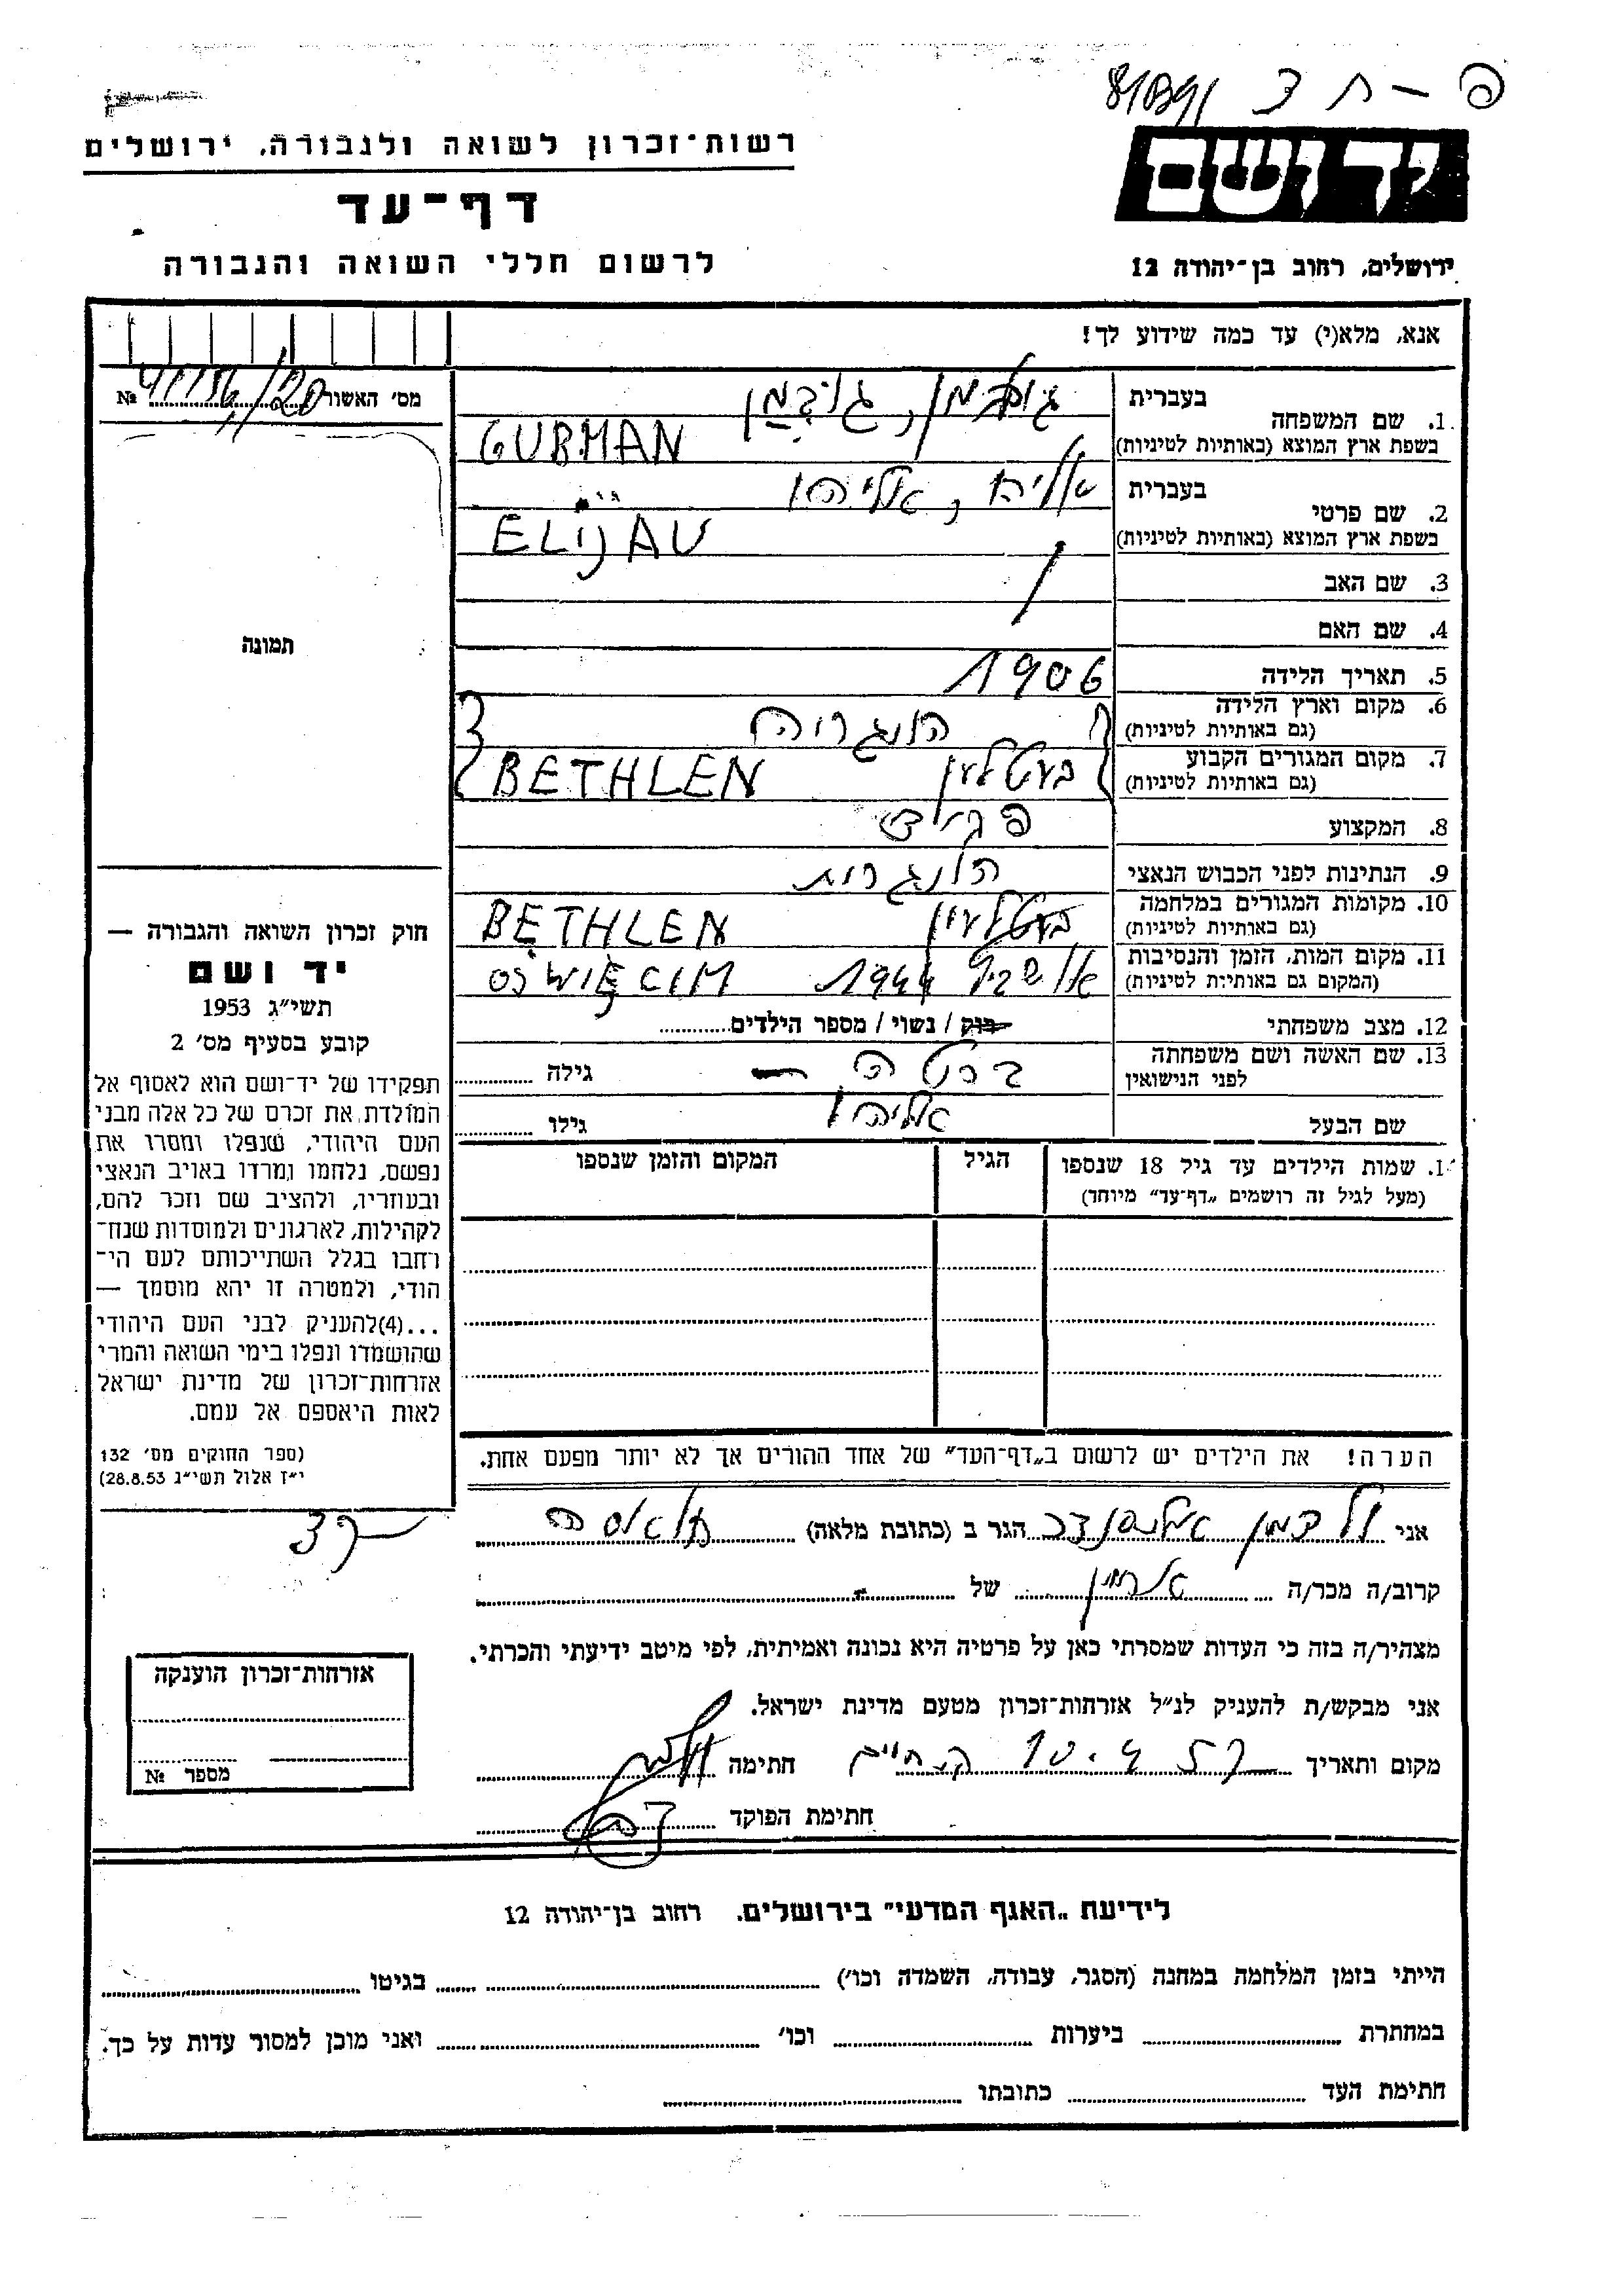 פ – ח ג 81091
יד ושם
רשות־זכרון לשואה ולגבורה, ירושלים
דף־עד
ירושלים, רחוב בן־יהודה 12
לרשום חללי השואה והגבורה
אנא, מלא(י) עד כמה שידוע לך!
מס' האשור №
1. שם המשפחה
בעברית גובמן
בשפת ארץ המוצא (באותיות לטיניות) GUBMAN
2. שם פרטי
בעברית אליהו
בשפת ארץ המוצא (באותיות לטיניות) ELIJAU
3. שם האב
4. שם האם
5. תאריך הלידה 1906
6. מקום וארץ הלידה הונגריה
(גם באותיות לטיניות)
7. מקום המגורים הקבוע בעטלען BETHLEN
(גם באותיות לטיניות)
8. המקצוע
9. הנתינות לפני הכבוש הנאצי הונגרית
10. מקומות המגורים במלחמה בעטלען BETHLEN
(גם באותיות לטיניות)
11. מקום המות, הזמן והנסיבות 1944 OŚWIĘCIM
(המקום גם באותיות לטיניות)
12. מצב משפחתי רוק / נשוי / מספר הילדים
13. שם האשה ושם משפחתה ברטה – גילה
לפני הנישואין
שם הבעל אליהו גילו
1. שמות הילדים עד גיל 18 שנספו הגיל המקום והזמן שנספו
(מעל לגיל זה רושמים „דף־עד" מיוחד)
תמונה
חוק זכרון השואה והגבורה —
יד ושם
תשי"ג 1953
קובע בסעיף מס' 2
תפקידו של יד־ושם הוא לאסוף אל
המולדת את זכרם של כל אלה מבני
העם היהודי, שנפלו ומסרו את
נפשם, נלחמו ומרדו באויב הנאצי
ובעוזריו, ולהציב שם וזכר להם,
לקהילות, לארגונים ולמוסדות שנח־
רחבו בגלל השתייכותם לעם הי־
הודי, ולמטרה זו יהא מוסמך —
...(4)להעניק לבני העם היהודי
שהושמדו ונפלו בימי השואה והמרי
אזרחות־זכרון של מדינת ישראל
לאות היאספם אל עמם.
(ספר החוקים מס' 132
י"ז אלול תשי"ג 28.8.53)
הערה! את הילדים יש לרשום ב„דף־העד" של אחד ההורים אך לא יותר מפעם אחת.
אני ולדמן אלכסנדר הגר ב (כתובת מלאה)
קרוב/ה מכר/ה של
מצהיר/ה בזה כי העדות שמסרתי כאן על פרטיה היא נכונה ואמיתית, לפי מיטב ידיעתי והכרתי.
אני מבקש/ת להעניק לנ"ל אזרחות־זכרון מטעם מדינת ישראל.
מקום ותאריך ק. חיים 10.4.57 חתימה
חתימת הפוקד
אזרחות־זכרון הוענקה
מספר №
לידיעת „האגף המדעי" בירושלים, רחוב בן־יהודה 12
הייתי בזמן המלחמה במחנה (הסגר, עבודה, השמדה וכו') בגיטו
במחתרת ביערות וכו' ואני מוכן למסור עדות על כך.
חתימת העד כתובתו